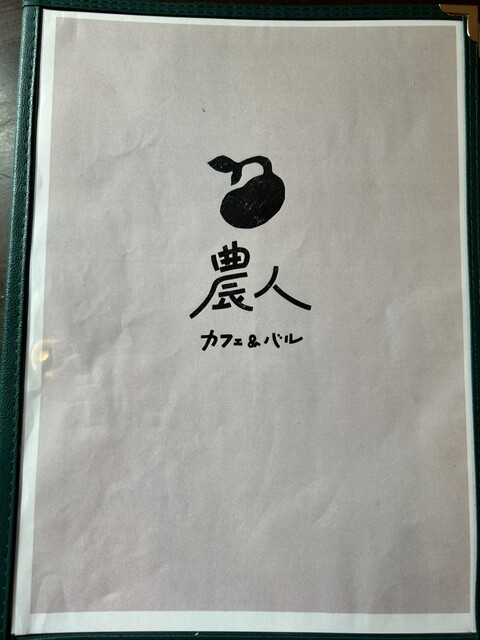 農人
カフェ&バル